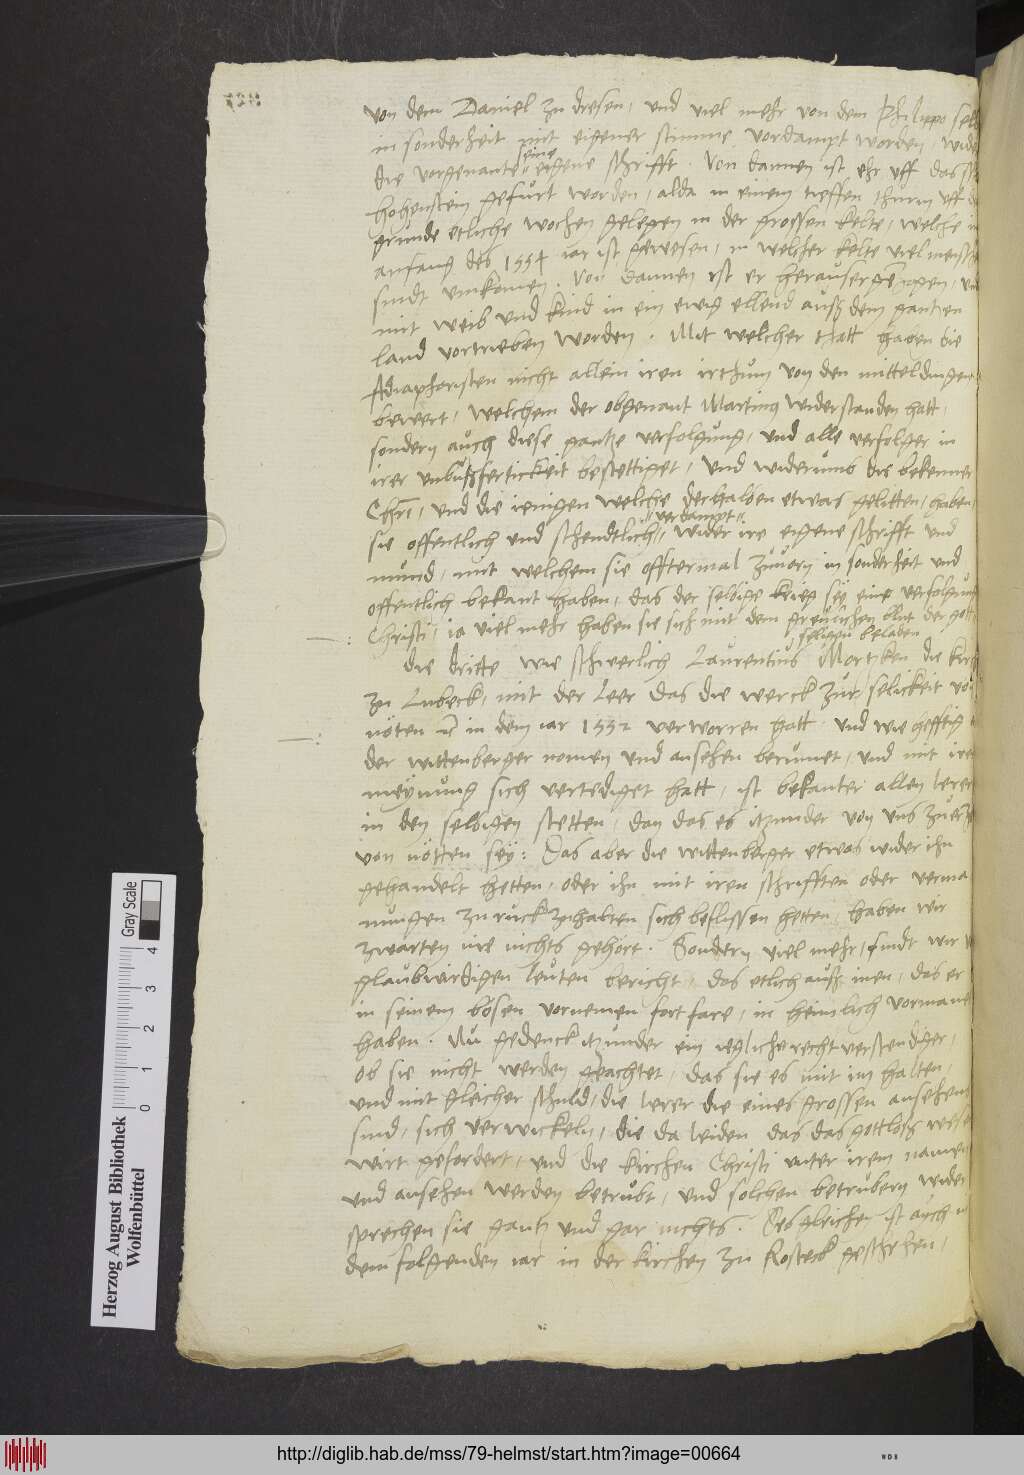 von dem Daniel zu dresen, und viel mehr von dem Philippo selb
in sonderheit mit eigener stimme vordampt worden, wide
die vorgenante seine eigene schrifft. Von dannen ist ehr uff das
hohenstein gefürt worden, alda in einem tieffen thurm uff
grunde etliche wochen gelegen in der grossen kelte, welche
anfang des 1554 iar ist gewesen, in welcher kelte viel mensch
sindt umkomen. Von dannen ist er herausergezogen, und
mit weib und kind in ein ewig ellend auß dem gantzen
land vortrieben worden. Mit welcher thatt haben die
Adiaphoristen nicht allein iren irthum von den mitteldingen
bewert, welchem der obgenant Martinus widerstanden hatt,
sondern auch diese gantze verfolgung, und alle verfolger in
irer unbußfertickeit bestettiget, und widerumb die bekenner
Christi, und die ienigen welche derhalben etwas gelitten, haben
sie offentlich und schendtlich verdampt, wider ire eigene schrifft und
mund, mit welchem sie offtermal zuuorn in sonderheit und
offentlich bekant haben, das der selbige krieg sey eine verfolgung
Christi, ia viel mehr haben sie sich mit dem greulichen blut der gott
seligen beladen
die dritte wie schwerlich Laurentius Mortzken die kirch
zu Lubeck, mit der leer das die werck zur selickeit von
nöten in dem iar 1552 verworren hatt. und wie hefftig
der wittenberger nomen und ansehen berumet, und mit irer
meynung sich vertediget hatt, ist bekanter allen lerer
in den selbigen stetten, dan das es itzunder von uns zuer
von nötten sey: Das aber die wittenberger etwas wider ihn
gehandelt hetten, oder ihn mit iren schrifften oder verma
nungen zu rück zuhalten sich beflissen hetten, haben wir
zwarten nie nichts gehört. Sondern viel mehr sindt wir
glaubwirdigen leuten bericht, das etlich auß inen, das er
in seinem bösen vornemen fort fare, in heimlich vormanet
haben. Nu gedenck itzunder ein iglicher rechtverstendiger,
ob sie nicht werden geachtet, das sie es mit im halten,
und mit gleicher schuld, die lerer die eines grossen ansehens
sind, sich verwickeln, die da leiden das das gottloß wesen
wirt gefordert, und die kirchen Christi unter irem namen
und ansehen werden betrubt, und solchen betrubern wider
sprechen sie gantz und gar nichts. Desgleichen ist auch
dem folgenden iar in der kirchen zu Rosteck geschehen,
Herzog August Bibliothek
Wolfenbüttel
Gray Scale
0 1 2 3 4
http://diglib.hab.de/mss/79-helmst/start.htm?image=00664